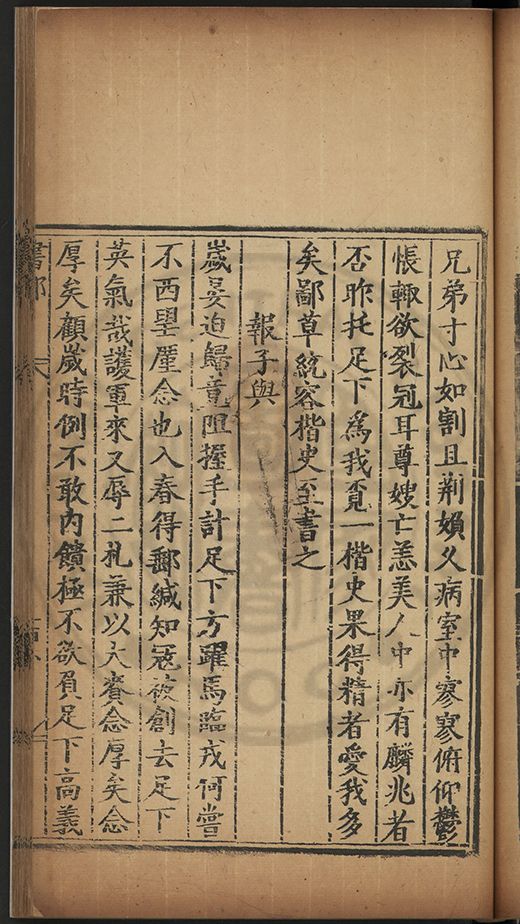 兄弟寸心如割且荆媍久病室中寥寥俯仰鬱
悵輙欲裂冠耳尊嫂亡恙美人中亦有麟兆者
否昨托足下爲我覔一楷史果得精者愛我多
矣鄙草統容楷史至書之
報子與
歲晏迫歸竟阻握手計足下方躍馬臨戎何嘗
不西望厪念也入春得郵緘知冦被創去足下
英氣哉護軍來又辱二札兼以大賚念厚矣念
厚矣顧歲時例不敢内饋極不欲負足下高義
書部